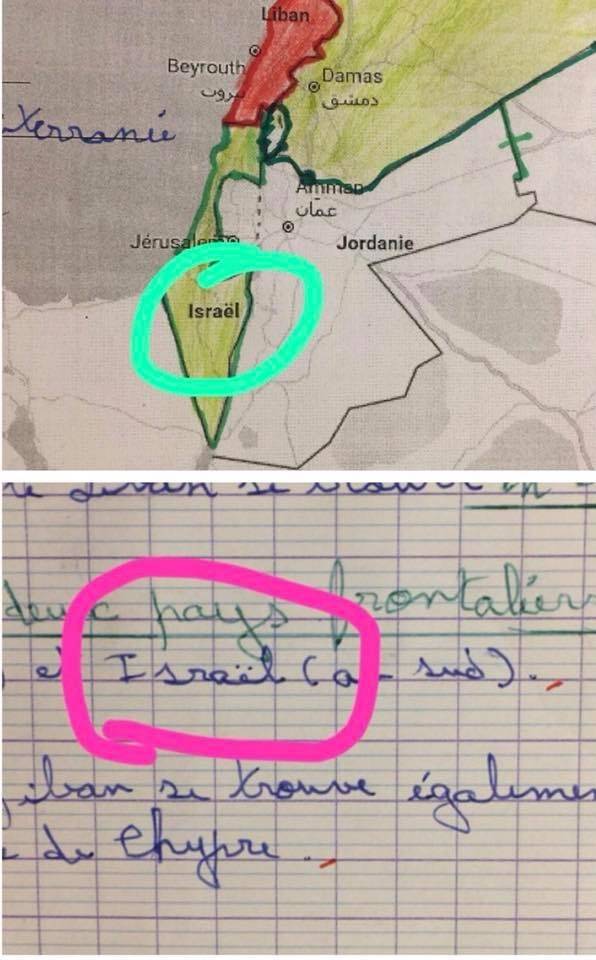 Liban
Beyrouth
بيروت
Damas
دمشق
Amman
عمّان
Jérusalem
Jordanie
Israël
deux pays frontaliers
et Israël (au sud).
Liban se trouve égalemen
de Chypre.